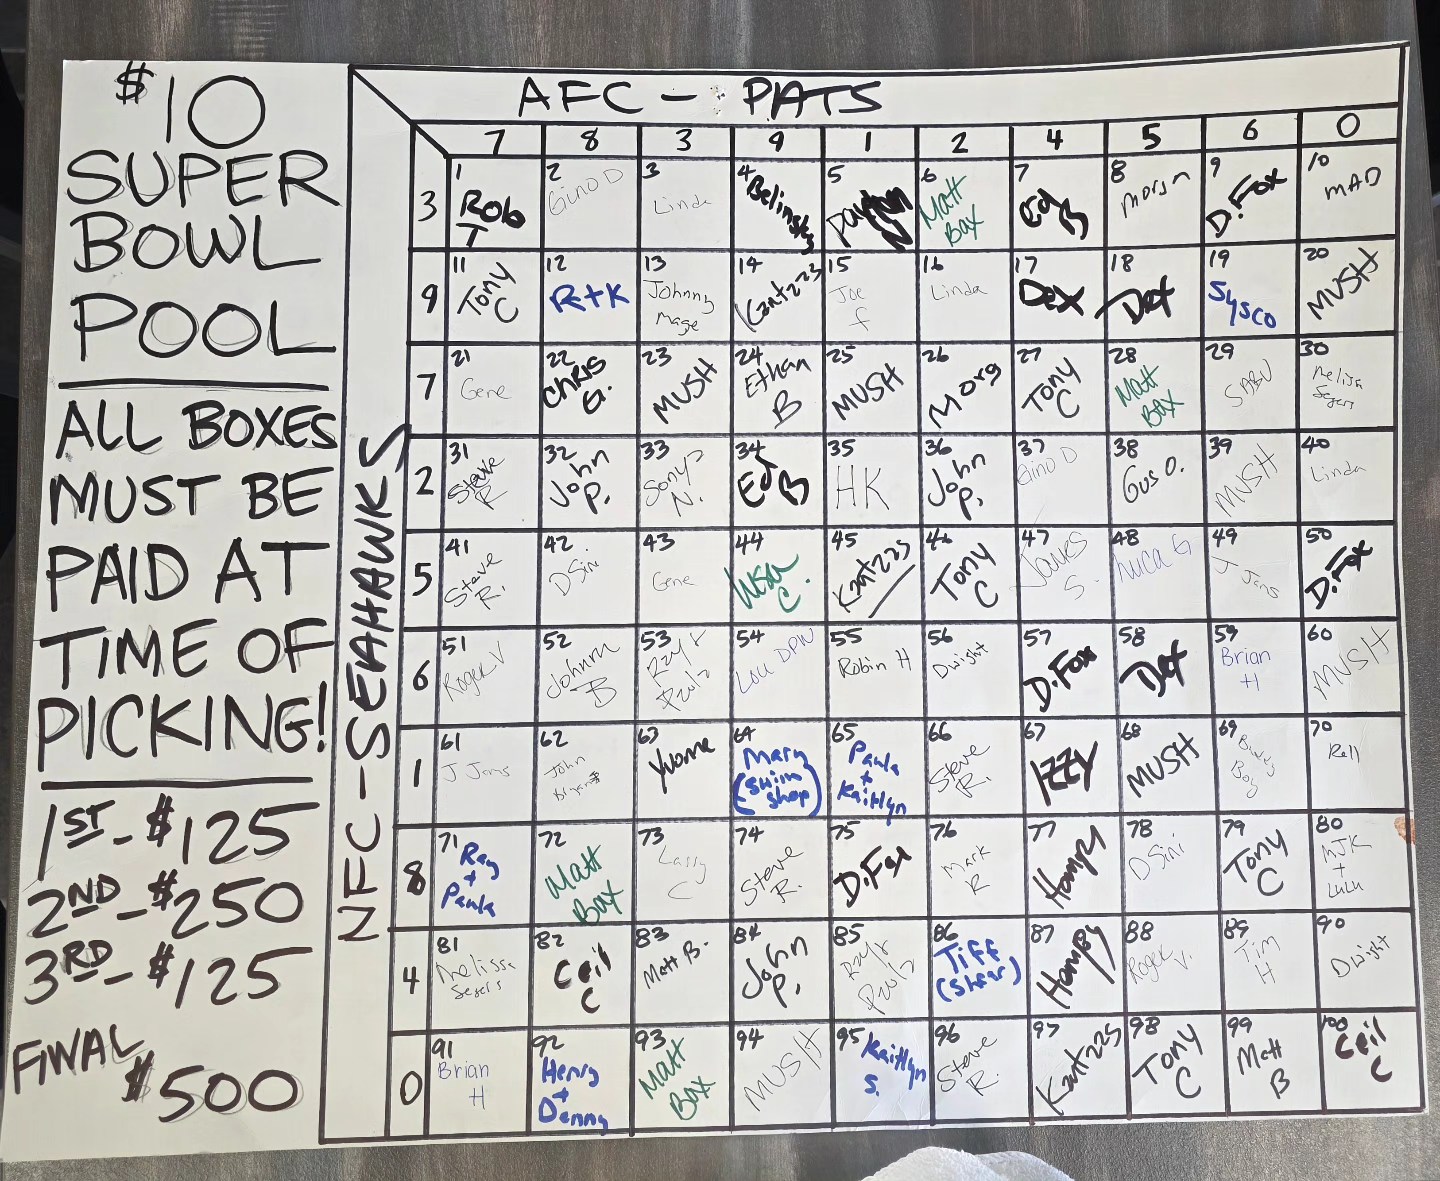 $10
SUPER
BOWL
POOL
ALL BOXES
MUST BE
PAID AT
TIME OF
PICKING!
1ST - $125
2ND - $250
3RD - $125
FINAL
$500
AFC - PATS
NFC - SEAHAWKS
7 8 3 9 1 2 4 5 6 0
3
1 Rob T
2 Gino D
3 Linda
4
5
6 Matt Bax
7 Ed B
8
9 D. Fox
10 MAD
9
11 Tony C
12 R+K
13 Johnny Mage
14 Kantzzs
15 Joe f
16 Linda
17 Dex
18 Dex
19 Sysco
20 MUSH
7
21 Gene
22 CHRIS G.
23 MUSH
24 Ethan B
25 MUSH
26 Morg
27 Tony C
28 Matt Bax
29 SABU
30 Melissa Segers
2
31 Steve R
32 John P.
33 N.
34 Ed B
35 HK
36 John P.
37 Gino D
38 Gus O.
39 MUSH
40 Linda
5
41 Steve R.
42 D Sini
43 Gene
44 C.
45 Kantzzs
46 Tony C
47 James S.
48 Luca G
49 J Jons
50 D. Fox
6
51 Roger V
52 B
53
54 Lou DPW
55 Robin H
56 Dwight
57 D. Fox
58 Dex
59 Brian H
60 MUSH
1
61 J Jons
62 John
63 Yvonne
64 Mary (swim shop)
65 Paula + Kaitlyn
66 Steve R.
67 IZZY
68 MUSH
69 Boy
70 Rell
8
71 Ray + Paula
72 Matt Bax
73 Larry C
74 Steve R.
75 D. Fox
76 Mark R
77 Hompy
78 D Sini
79 Tony C
80 MJK + LuLu
4
81 Melissa Segers
82 Ceil C
83 Matt B.
84 John P.
85
86 Tiff (shear)
87 Hompy
88 Roger V.
89 Tim H
90 Dwight
0
91 Brian H
92 Henry + Denny
93 Matt Bax
94 MUSH
95 Kaitlyn S.
96 Steve R.
97 Kantzzs
98 Tony C
99 Matt B
100 Ceil C